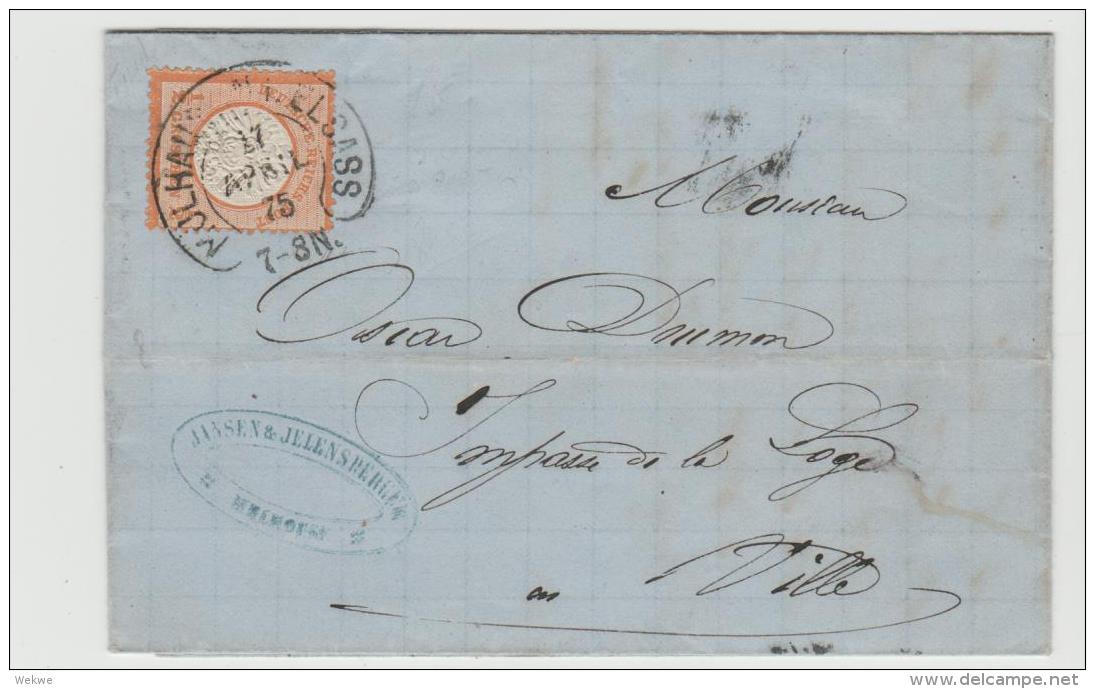 MÜLHAUSEN ELSASS
17
APRIL
75
7-8N.
DEUTSCHE REICHS POST
Monsieur
Oscar Drumon
Impasse de la Loge
en Ville
JANSEN & JELENSPERGER
MULHOUSE
Wekwe
delcampe.net